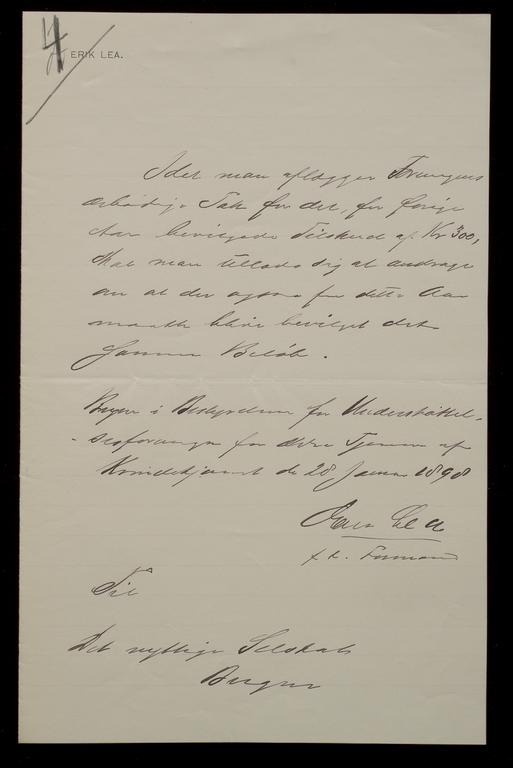 ERIK LEA.
Idet man aflægger Foreningens
ærbødige Tak for det, for forrige
Aar bevilgede Tilskud af Kr 300,
skal man tillade sig at andrage
om at der ogsaa for dette Aar
maatte blive bevilget det
samme Beløb.
Bergen i Bestyrelsen for Understøttel-
-sesforeningen for ældre Tjenere af
Kvindekjønnet de 28 Januar 1898
Lea
f. t. Formand
Til
Det nyttige Selskab
Bergen